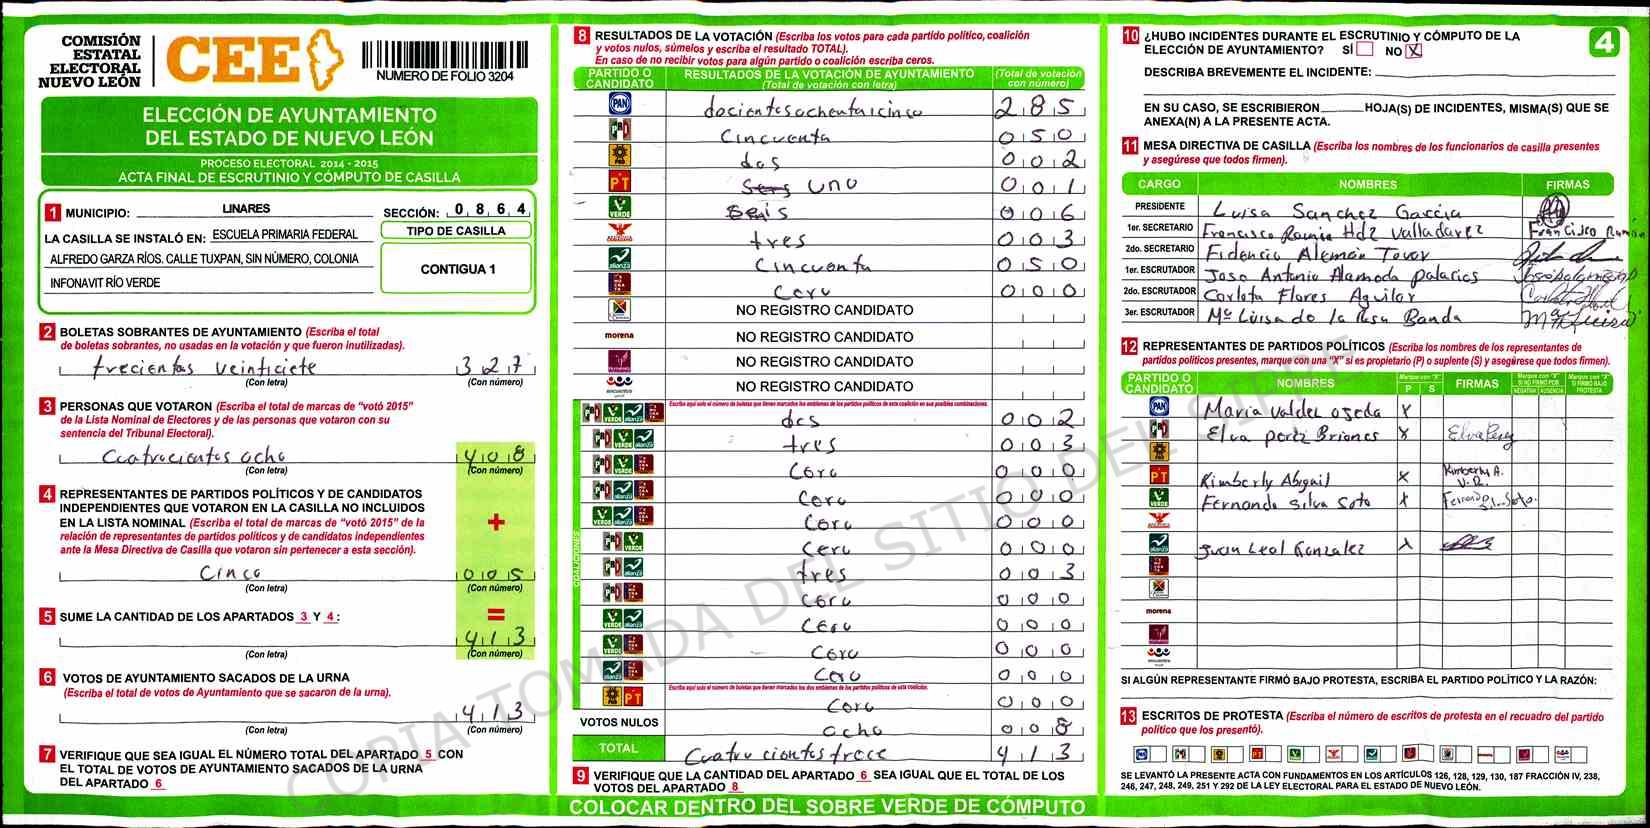 COMISIÓN
ESTATAL
ELECTORAL
NUEVO LEÓN
CEE
NUMERO DE FOLIO 3204
ELECCIÓN DE AYUNTAMIENTO
DEL ESTADO DE NUEVO LEÓN
PROCESO ELECTORAL 2014 - 2015
ACTA FINAL DE ESCRUTINIO Y CÓMPUTO DE CASILLA
1 MUNICIPIO: LINARES SECCIÓN: 0 8 6 4
LA CASILLA SE INSTALÓ EN: ESCUELA PRIMARIA FEDERAL
ALFREDO GARZA RÍOS. CALLE TUXPAN, SIN NÚMERO, COLONIA
INFONAVIT RÍO VERDE
TIPO DE CASILLA
CONTIGUA 1
2 BOLETAS SOBRANTES DE AYUNTAMIENTO (Escriba el total
de boletas sobrantes, no usadas en la votación y que fueron inutilizadas).
trecientas veinticiete 3 2 7
(Con letra) (Con número)
3 PERSONAS QUE VOTARON (Escriba el total de marcas de "votó 2015"
de la Lista Nominal de Electores y de las personas que votaron con su
sentencia del Tribunal Electoral).
Cuatrocientos ocho 4 0 8
(Con letra) (Con número)
4 REPRESENTANTES DE PARTIDOS POLÍTICOS Y DE CANDIDATOS
INDEPENDIENTES QUE VOTARON EN LA CASILLA NO INCLUIDOS
EN LA LISTA NOMINAL (Escriba el total de marcas de "votó 2015" de la
relación de representantes de partidos políticos y de candidatos independientes
ante la Mesa Directiva de Casilla que votaron sin pertenecer a esta sección).
+
Cinco 0 0 5
(Con letra) (Con número)
5 SUME LA CANTIDAD DE LOS APARTADOS 3 Y 4:
=
4 1 3
(Con letra) (Con número)
6 VOTOS DE AYUNTAMIENTO SACADOS DE LA URNA
(Escriba el total de votos de Ayuntamiento que se sacaron de la urna).
4 1 3
(Con letra) (Con número)
7 VERIFIQUE QUE SEA IGUAL EL NÚMERO TOTAL DEL APARTADO 5 CON
EL TOTAL DE VOTOS DE AYUNTAMIENTO SACADOS DE LA URNA
DEL APARTADO 6
8 RESULTADOS DE LA VOTACIÓN (Escriba los votos para cada partido político, coalición
y votos nulos, súmelos y escriba el resultado TOTAL).
En caso de no recibir votos para algún partido o coalición escriba ceros.
PARTIDO O CANDIDATO RESULTADOS DE LA VOTACIÓN DE AYUNTAMIENTO (Total de votación con letra) (Total de votación con número)
PAN docientosochentaicinco 2 8 5
PRI Cincuenta 0 5 0
PRD dos 0 0 2
PT Seis uno 0 0 1
VERDE Seis 0 0 6
tres 0 0 3
alianza Cincuenta 0 5 0
Cero 0 0 0
NO REGISTRO CANDIDATO
morena NO REGISTRO CANDIDATO
NO REGISTRO CANDIDATO
encuentro NO REGISTRO CANDIDATO
COALICIONES
Escriba aquí solo el número de boletas que tienen marcados los emblemas de los partidos políticos de esta coalición en sus posibles combinaciones.
dos 0 0 2
tres 0 0 3
Cero 0 0 0
Cero 0 0 0
Cero 0 0 0
Cero 0 0 0
tres 0 0 3
Cero 0 0 0
Cero 0 0 0
Cero 0 0 0
Cero 0 0 0
Escriba aquí solo el número de boletas que tienen marcados los dos emblemas de los partidos políticos de esta coalición.
PT Cero 0 0 0
VOTOS NULOS ocho 0 0 8
TOTAL Cuatrocientostrece 4 1 3
9 VERIFIQUE QUE LA CANTIDAD DEL APARTADO 6 SEA IGUAL QUE EL TOTAL DE LOS
VOTOS DEL APARTADO 8
COLOCAR DENTRO DEL SOBRE VERDE DE CÓMPUTO
4
10 ¿HUBO INCIDENTES DURANTE EL ESCRUTINIO Y CÓMPUTO DE LA
ELECCIÓN DE AYUNTAMIENTO? SÍ NO X
DESCRIBA BREVEMENTE EL INCIDENTE:
EN SU CASO, SE ESCRIBIERON HOJA(S) DE INCIDENTES, MISMA(S) QUE SE
ANEXA(N) A LA PRESENTE ACTA.
11 MESA DIRECTIVA DE CASILLA (Escriba los nombres de los funcionarios de casilla presentes
y asegúrese que todos firmen).
CARGO NOMBRES FIRMAS
PRESIDENTE Luisa Sanchez Garcia
1er. SECRETARIO Francisco Ramón Hdz Valladarez Francisco Ramón
2do. SECRETARIO Fidencio Alemán Tovar
1er. ESCRUTADOR Jose Antonio Alameda palacios
2do. ESCRUTADOR Carlota Flores Aguilar
3er. ESCRUTADOR Ma Luisa de la Rosa Banda Ma Luisa
12 REPRESENTANTES DE PARTIDOS POLÍTICOS (Escriba los nombres de los representantes de
partidos políticos presentes, marque con una "X" si es propietario (P) o suplente (S) y asegúrese que todos firmen).
PARTIDO O CANDIDATO NOMBRES Marque con "X" P S FIRMAS Marque con "X" SI NO FIRMÓ POR: NEGATIVA AUSENCIA Marque con "X" SI FIRMÓ BAJO PROTESTA
PAN Maria valdez ojeda X
PRI Elva perez Briones X Elva Perez
PRD
PT Kimberly Abigail X Kimberly A. V.R.
VERDE Fernando Silva Soto X Fernando Silva Soto.
alianza Juan Leal Gonzalez X
morena
encuentro
SI ALGÚN REPRESENTANTE FIRMÓ BAJO PROTESTA, ESCRIBA EL PARTIDO POLÍTICO Y LA RAZÓN:
13 ESCRITOS DE PROTESTA (Escriba el número de escritos de protesta en el recuadro del partido
político que los presentó).
SE LEVANTÓ LA PRESENTE ACTA CON FUNDAMENTOS EN LOS ARTÍCULOS 126, 128, 129, 130, 187 FRACCIÓN IV, 238,
246, 247, 248, 249, 251 Y 292 DE LA LEY ELECTORAL PARA EL ESTADO DE NUEVO LEÓN.
COPIA TOMADA DEL SITIO DEL SIPRE